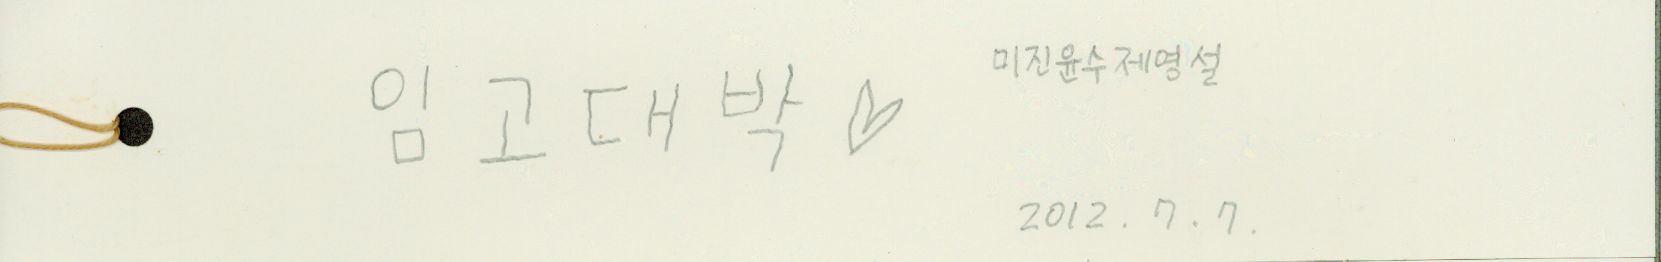 임고대박♡
미진윤수제영설
2012.7.7.